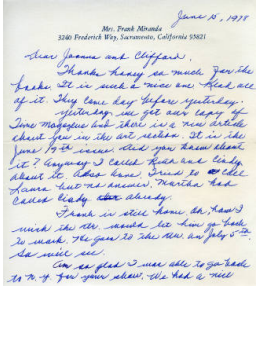 June 15, 1978
Mrs. Frank Miranda
3240 Frederick Way, Sacramento, California 95821
Dear Joanna and Clifford,
Thanks honey so much for the
books. It is such a nice one. Read all
of it. They came day before yesterday.
Yesterday we got our copy of
Time magazine and there is a nice article
about you in the art section. It is the
June issue. Did you know about
it? Anyway I called Ruth and Cindy
about it. Also have tried to call
Laura but no answer. Martha had
called Cindy already.
Frank is still home. Oh, how I
wish the Dr. would let him go back
to work. He goes to the Dr. on July 5th.
So will see.
Am so glad I was able to go back
to N.Y. for your show. We had a nice